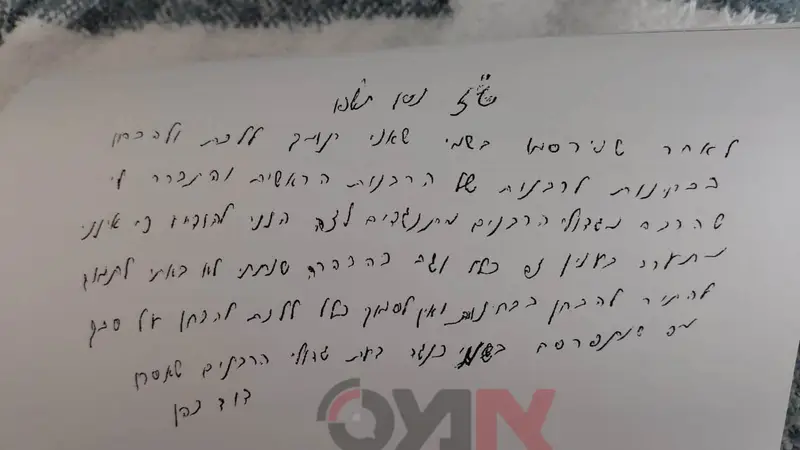 ט"ז ניסן תשפא
לאחר שפירסמו בשמי שאני תומך ללכת ולהבחן
בבחינות לרבנות של הרבנות הראשית והתברר לי
שהרבה מגדולי הרבנים מתנגדים לצה הנני להודיע כי אינני
מתערב בענין זה כלל וגם בהסכמה שנתתי לא באתי לתמוך
להתיר להבחן בבחינות ואין לסמוך כלל ללכת להבחן על סמך
מה שנתפרסם בשמי כנגד דעת גדולי הרבנים שאסרו
דוד כהן
אמס